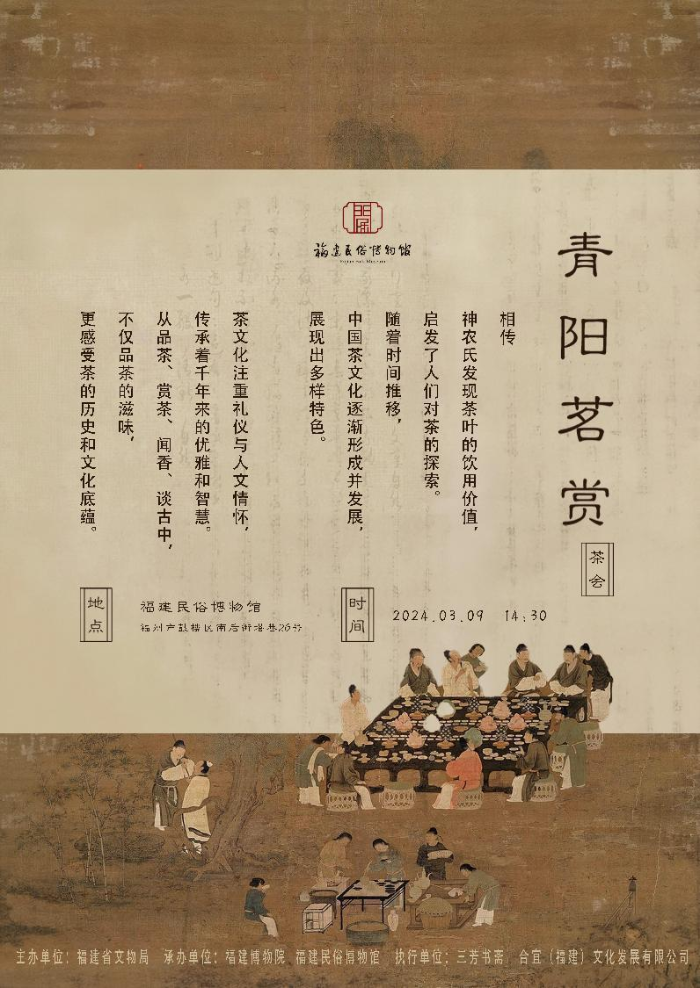 福建民俗博物馆
青阳茗赏
茶会
相传
神农氏发现茶叶的饮用价值，
启发了人们对茶的探索。
随着时间推移，
中国茶文化逐渐形成并发展，
展现出多样特色。
茶文化注重礼仪与人文情怀，
传承着千年来的优雅和智慧。
从品茶、赏茶、闻香、谈古中，
不仅品茶的滋味，
更感受茶的历史和文化底蕴。
时间
2024.03.09 14:30
地点
福建民俗博物馆
福州市鼓楼区南后街塔巷26号
主办单位：福建省文物局 承办单位：福建博物院 福建民俗博物馆 执行单位：三芳书斋 合宜（福建）文化发展有限公司